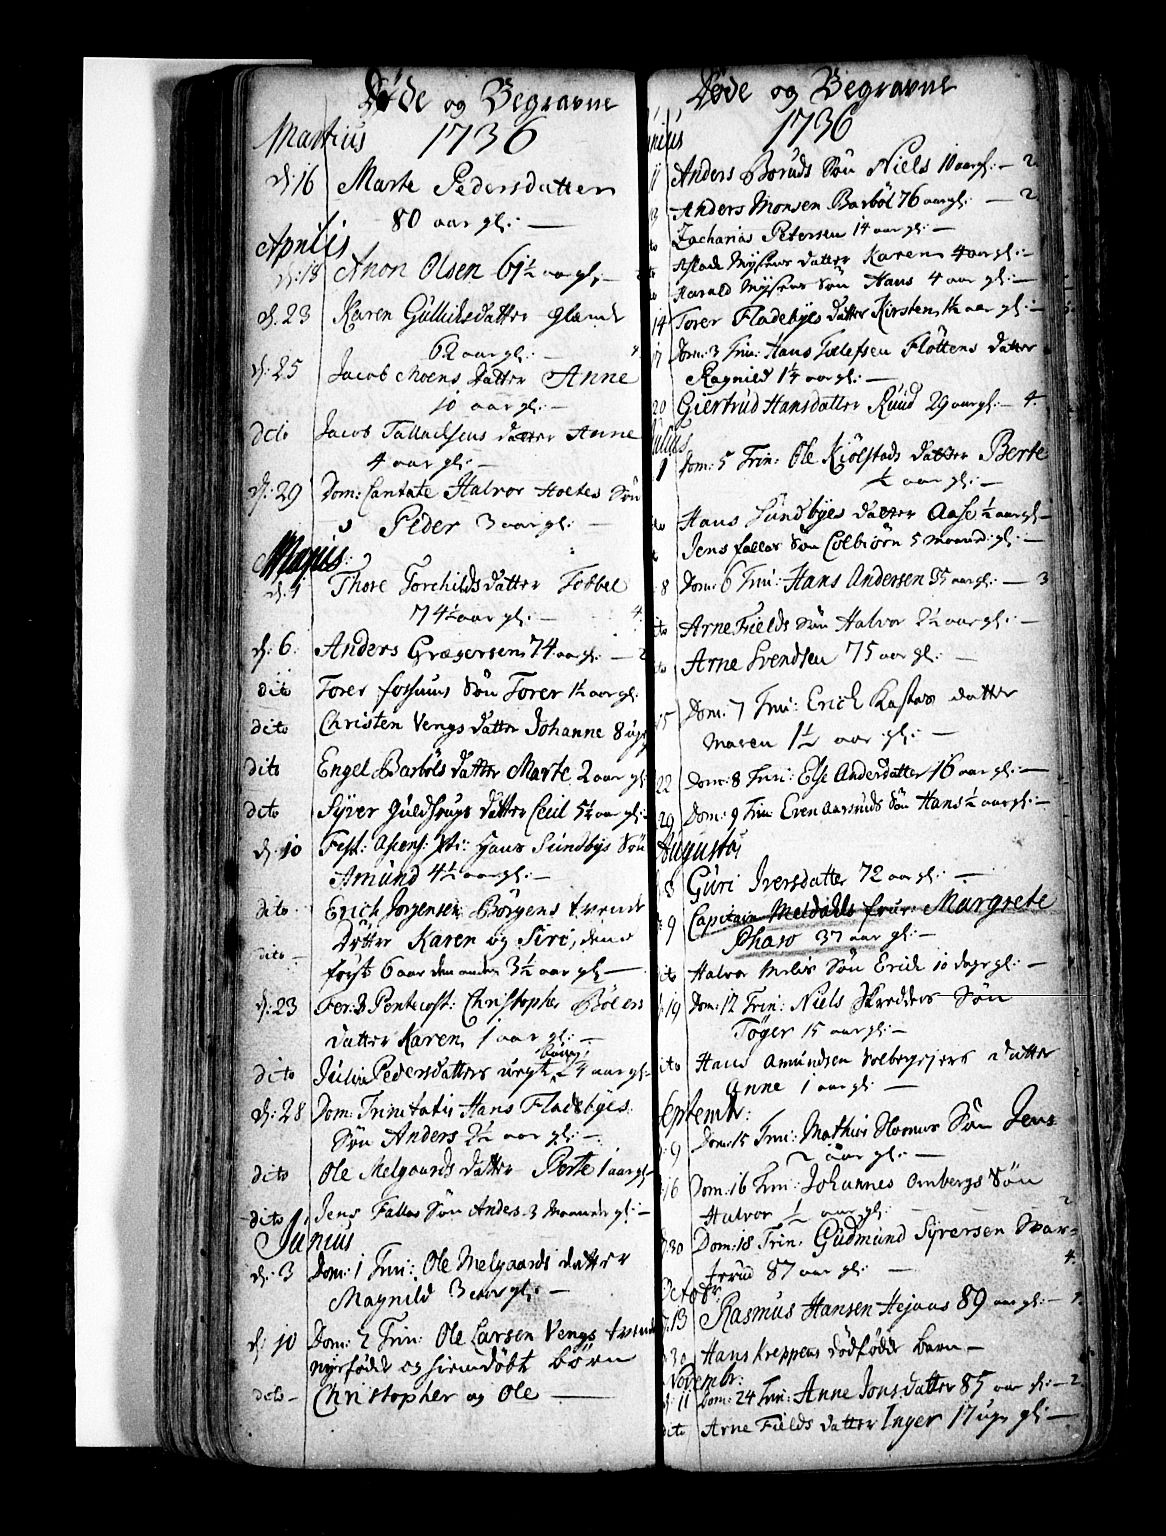 Døde og Begravne
Martius 1736
d: 16 Marte Pedersdatter
80 aar gl: —
Aprilis
d: 18 Anon Olsen 61½ aar gl: —
d. 23 Karen Gullichsdatter
62 aar gl: —
d: 25 Jacob Moens datter Anne
10 aar gl: —
dito Jacob datter Anne
4 aar gl: —
d: 29 Dom: Cantate Halvor Holtes Søn
Peder 3 aar gl: —
Majus:
d: 1 Thore Torchildsdatter
74½ aar gl: —
d: 6. Anders Gregersen 74 aar gl: —
dito Torer fossums Søn Torer 1½ aar gl:
dito Christen Vengs datter Johanne 8 uger
dito Engel Barbøls datter Marte 2 aar gl:
dito Syver datter Cecil 5½ aar gl:
d: 10 Fest: Ascens: Xti: Hans Sundbys Søn
Amund 4½ aar gl: —
dito Erich Jorgensen Børgens tvende
dito — Døttre Karen og Siri, dend
først 6 aar den anden 3½ aar gl —
d: 23 Fer: 3 Pentecost: Christopher Bøleers
datter Karen 1 aar gl: —
barn
dito Julia Pedersdatters uegte aar gl:
d: 28 Dom: Trinitatis Hans Fladebyes
Søn Anders 2½ aar gl: —
dito Ole Melgaards datter Berte 1 aar gl —
dito Jens Fallas Søn Anders 3 Maaneder gl: —
Junius
d: 3 Dom: 1 Trin: Ole Melgaards datter
Magnild 3 aar gl: —
d: 10 Dom: 2 Trin: Ole Larsen Vengs tvende
nyefødde og hiemdøbt børn
dito — Christopher og Ole —
Døde og Begravne
nius 1736
11 Anders Boruds Søn Niels 10 aar gl: — 2
Anders Monsen Barbøl 76 aar gl: — 2
Zacharias Petersen 14 aar gl: —
Mysens datter Karen 4 aar gl: —
Harald Mysens Søn Hans 4 aar gl: —
14 Torer Fladebyes datter Kirsten 1½ aar gl: —
17 Dom: 3 Trin: Hans Tolefsen Fløttens datter
Ragnild 1¼ aar gl: —
20 Giertrud Hansdatter Ruud 29 aar gl: — 4.
Julius
1 Dom: 5 Trin: Ole Kiølstads datter Berte
½ aar gl: —
Hans Sundbyes datter Aase ½ aar gl —
Jens fallas Søn Colbiørn 5 maaned: gl: —
8 Dom: 6 Trin: Hans Andersen 35 aar gl: — 3
ito Arne Fields Søn Halvor 2½ aar gl: —
Arne Svendsen 75 aar gl: —
15 Dom: 7 Trin: Erich Kastas datter
Maren 1½ aar gl: —
22 Dom: 8 Trin: Else Andersdatter 16 aar gl: —
29 Dom: 9 Trin: Even Aasruds Søn Hans ½ aar gl: —
Augustus
8 Guri Iversdatter 72 aar gl: —
9 Capitain Meldahls frue: Margrete
37 aar gl: —
ito Halvor Søn Erich 10 dage gl: —
19 Dom: 12 Trin: Niels Skredders Søn
Tøger 15 aar gl: —
ito Hans Amundsen datter
Anne 1 aar gl: —
Septembr:
9 Dom: 15 Trin: Mathias Søn Jens
2 aar gl: —
16 Dom: 16 Trin: Johannes Ombergs Søn
Halvor ½ aar gl: — 2
30 Dom: 18 Trin: Gudmund Syversen Svar-
terud 87 aar gl: — 4.
Octobr:
13 Rasmus Hansen Hejaas 89 aar gl: —
30 Hans Kreppens dødfødde barn —
Novembr:
d: 11 Dom: 24 Trin: Anne Jonsdatter 85 aar gl: — 2
dito Arne Fields datter Inger 17 uger gl: —